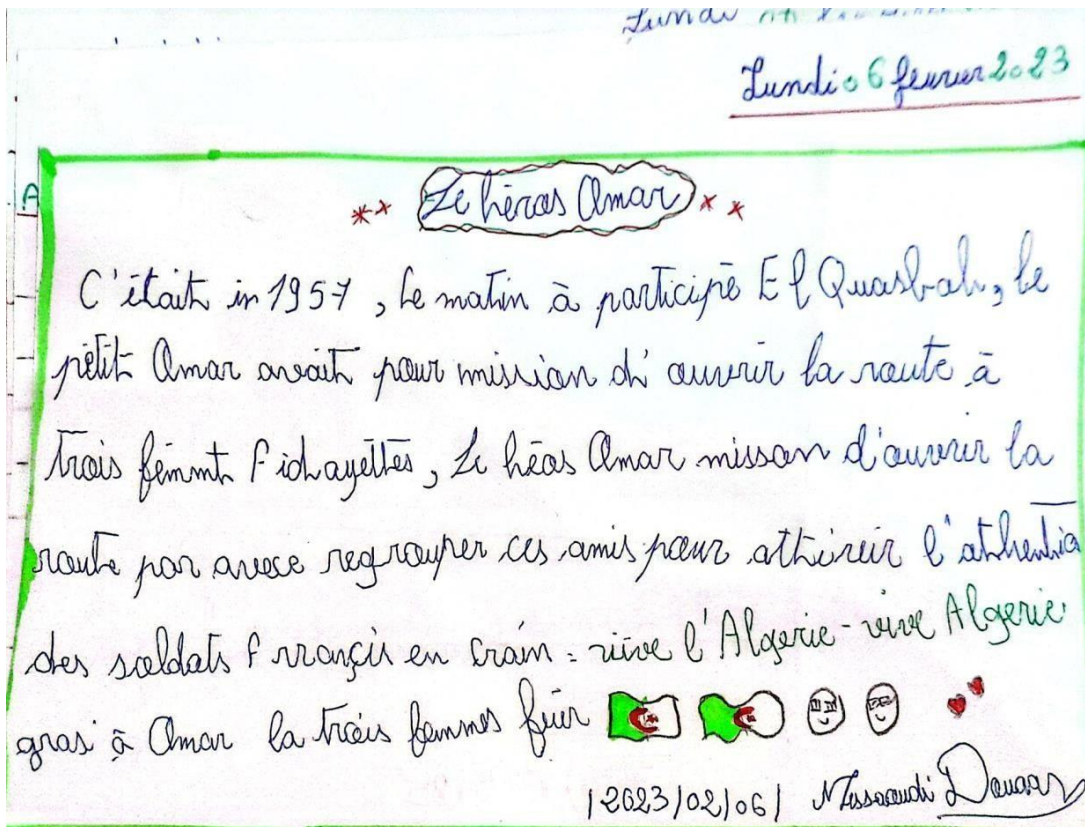 Lundi
Lundi 06 feurier 2023
A
Le héros Omar
C'était in 1957, le matin à participè El Quasbah, le
pètit Omar avait pour mission d'ouvrir la route à
trois fémmt Fidayèttes, Le hèos Omar misson d'ouvrir la
route par avece regrouper ces amis pour
des soldats Frrançis en crain = vive l'Algerie - vive Algerie
gras à Omar la trois femmes fuir
|2023/02/06| Messaoudi